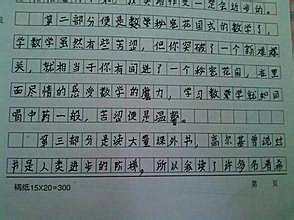 第二部分便是数学秘密花园式的数学了,
学数学虽然有些苦涩,但你突破了一个的难
关,就相当于你有间进了一个秘密花园,在里
面尽情的感受数学的魔力,学习数学就如同
喝中药一般,苦涩便是温馨。
第三部分是读大量课外书,高尔基曾说过
书是人类进步的阶梯,所以我读了许多书看
稿纸15X20=300
第 页